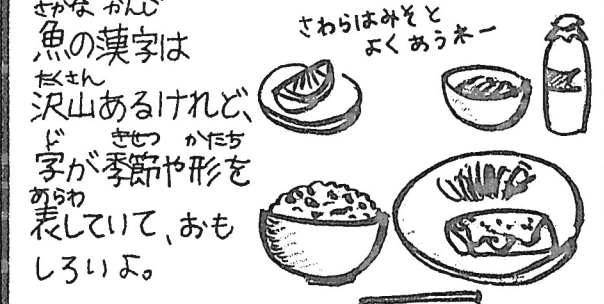 さかな かんじ
魚の漢字は
たくさん
沢山あるけれど、
じ きせつ かたち
字が季節や形を
あらわ
表していて、おも
しろいよ。
さわらはみそと
よくあうネー